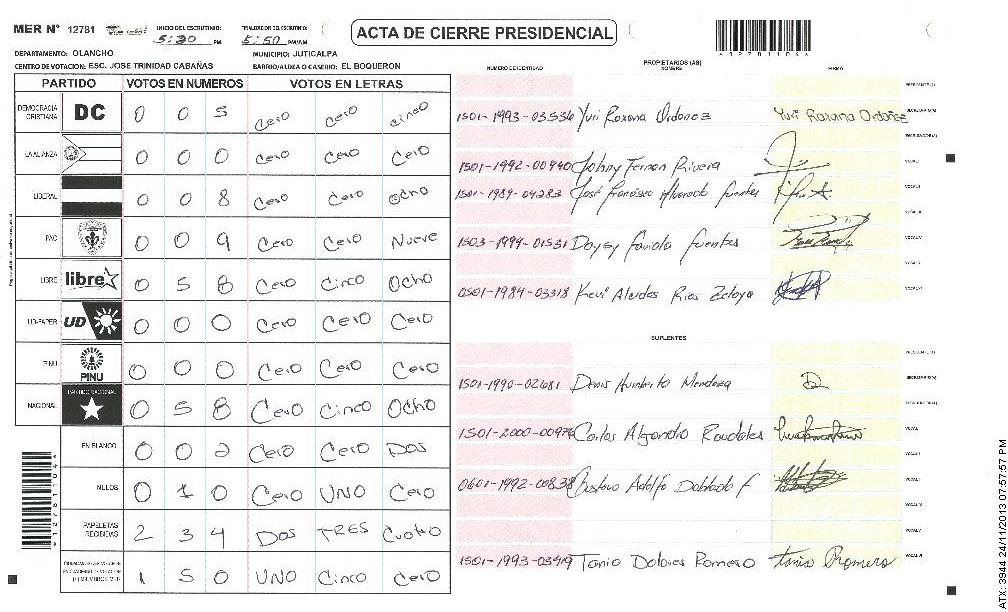 MER Nº 12781 INICIO DEL ESCRUTINIO: 5:30 PM 5:50 PM/AM
ACTA DE CIERRE PRESIDENCIAL
DEPARTAMENTO: OLANCHO MUNICIPIO: JUTICALPA
CENTRO DE VOTACION: ESC. JOSE TRINIDAD CABAÑAS BARRIO/ALDEA O CASERIO: EL BOQUERON
PARTIDO VOTOS EN NUMEROS VOTOS EN LETRAS
DEMOCRACIA CRISTIANA DC 0 0 5 Cero Cero cinco
LA ALIANZA 0 0 0 Cero Cero Cero
LIBERAL 0 0 8 Cero Cero Ocho
PAC 0 0 9 Cero Cero Nueve
LIBRE libre 0 5 8 Cero Cinco Ocho
UD-FAPER UD 0 0 0 Cero Cero Cero
PINU PINU 0 0 0 Cero Cero Cero
NACIONAL PARTIDO NACIONAL 0 5 8 Cero Cinco Ocho
EN BLANCO 0 0 2 Cero Cero Dos
NULOS 0 1 0 Cero UNO Cero
PAPELETAS RECIBIDAS 2 3 4 Dos TRES Cuatro
1 5 0 UNO Cinco Cero
NUMERO DE IDENTIDAD PROPIETARIOS (AS) NOMBRE FIRMA
1501-1993-03536 Yuri Roxana Ordonez Yuri Roxana Ordoñez
1501-1992-00940 Johny Fernan Rivera
1501-1989-04283 José Francisco Alvarado fuentes
1503-1994-01531 Daysy fariola fuentes
0501-1984-03318 Kevi Alendes Rios Zelaya
SUPLENTES
1501-1990-02681 Denis Humberto Mendoza
1501-2000-00976 Carlos Alejandro Raudales
0601-1992-00838 Gustavo Adolfo Doblado F
1501-1993-03419 Tania Dolores Romero Tania Romero
ATX: 3944 24/11/2013 07:57:57 PM